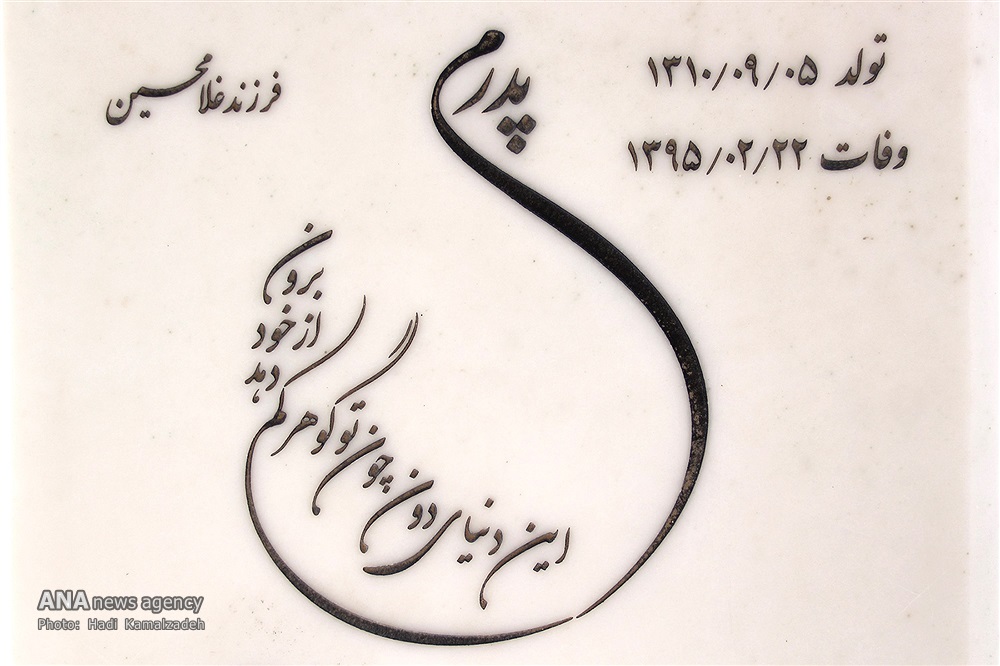 تولد ۱۳۱۰/۰۹/۰۵
وفات ۱۳۹۵/۰۲/۲۲
پدرم
فرزند غلامحسین
این دنیای دون چون تو گوهر کم
دهد
از خود
برون
ANA news agency
Photo: Hadi Kamalzadeh